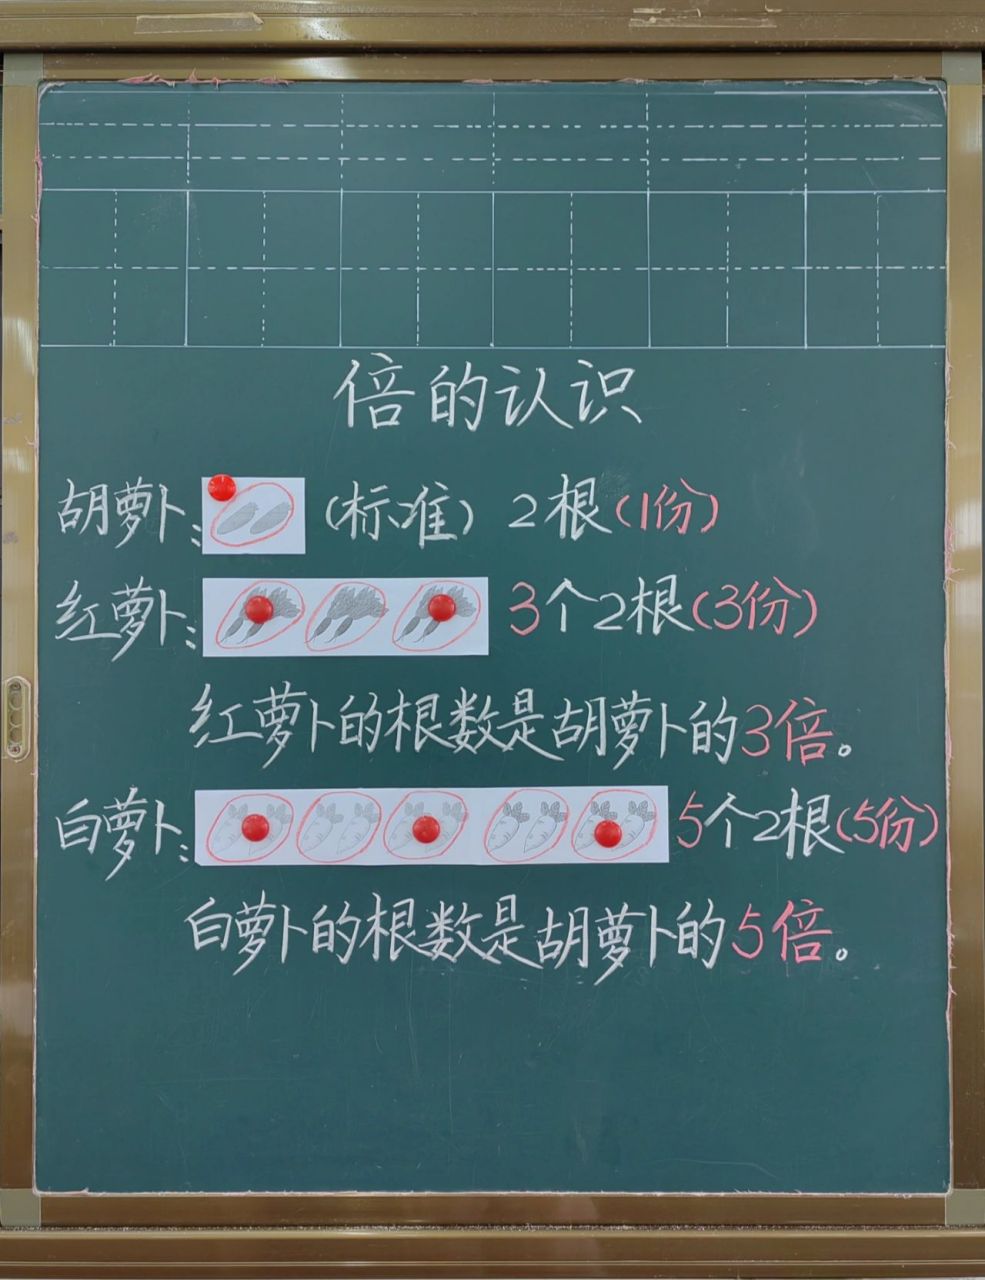 倍的认识
胡萝卜: (标准) 2根(1份)
红萝卜: 3个2根(3份)
红萝卜的根数是胡萝卜的3倍。
白萝卜: 5个2根(5份)
白萝卜的根数是胡萝卜的5倍。